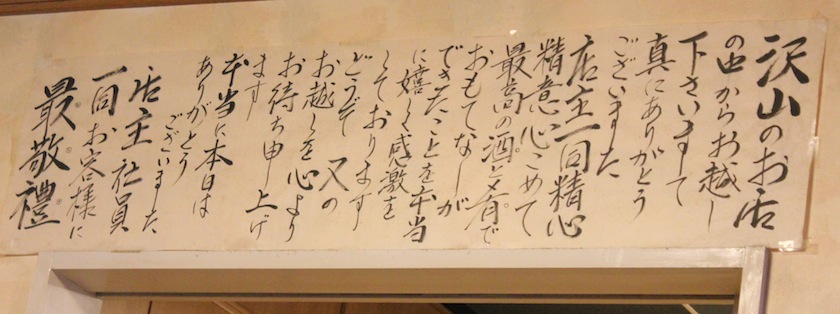 沢山のお店
の中からお越し
下さいまして
真にありがとう
ございました
店主一同精心
精意心こめて
最高の酒と肴で
おもてなしが
できたことを本当
に嬉しく感激を
しております
どうぞ又の
お越しを心より
お待ち申し上げ
ます
本当に本日は
ありがとう
ございました
店主社員
一同お客様に
最敬禮